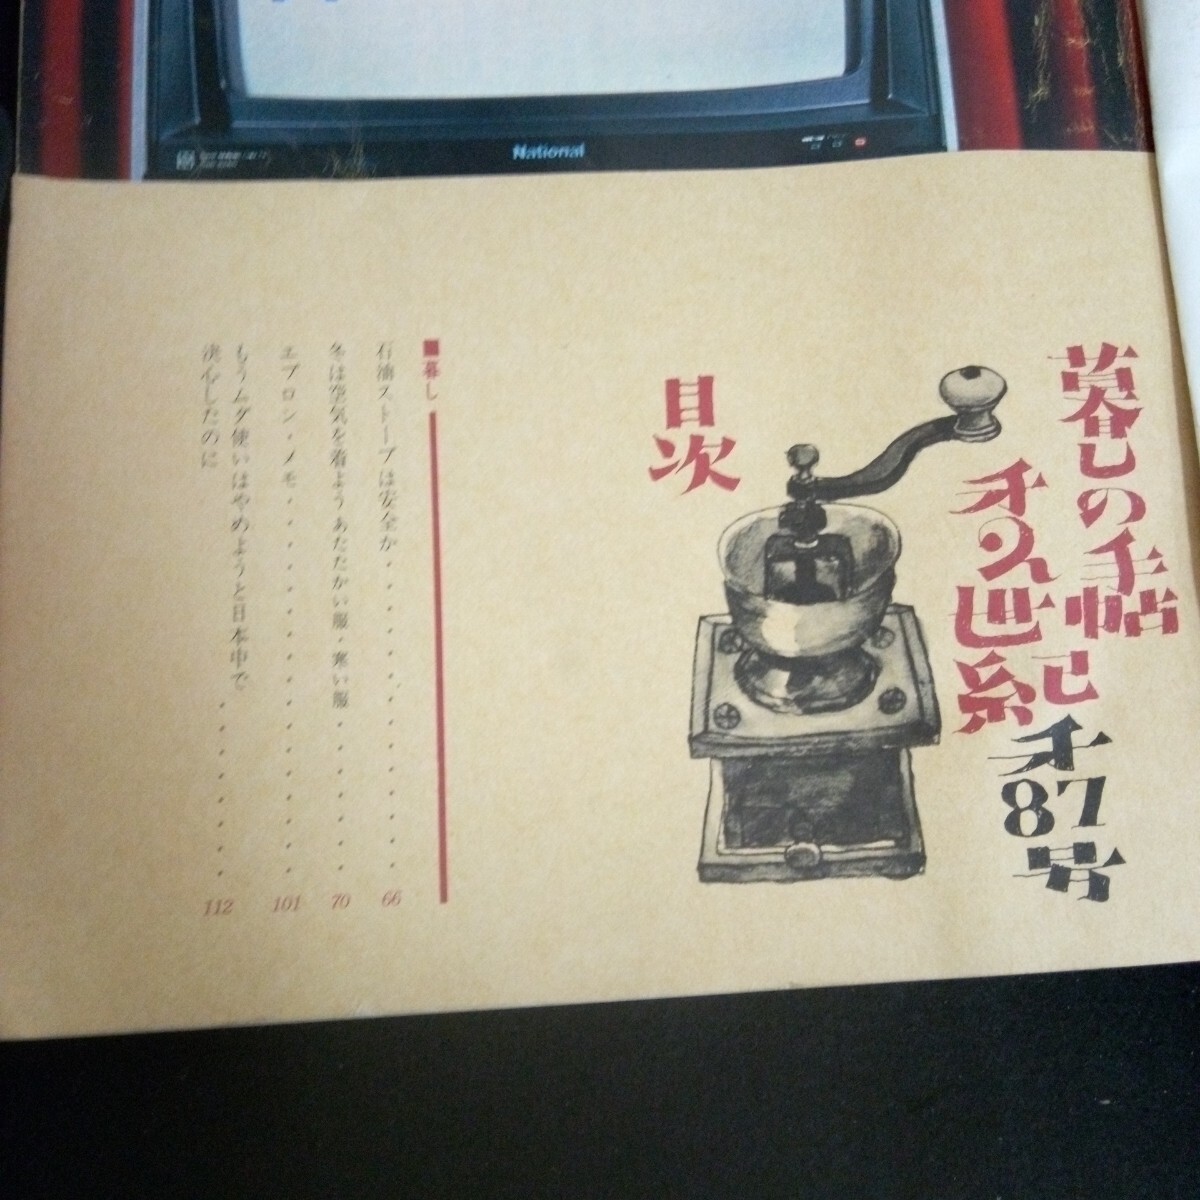 National
暮しの手帖
第2世紀
第87号
目次
■暮し
石油ストーブは安全か・・・・・・・・・・・・・66
冬は空気を着よう あたたかい服・寒い服・・・・・・・70
エプロン・メモ・・・・・・・・・・・・・・・・101
もうムダ使いはやめようと日本中で
決心したのに・・・・・・・・112